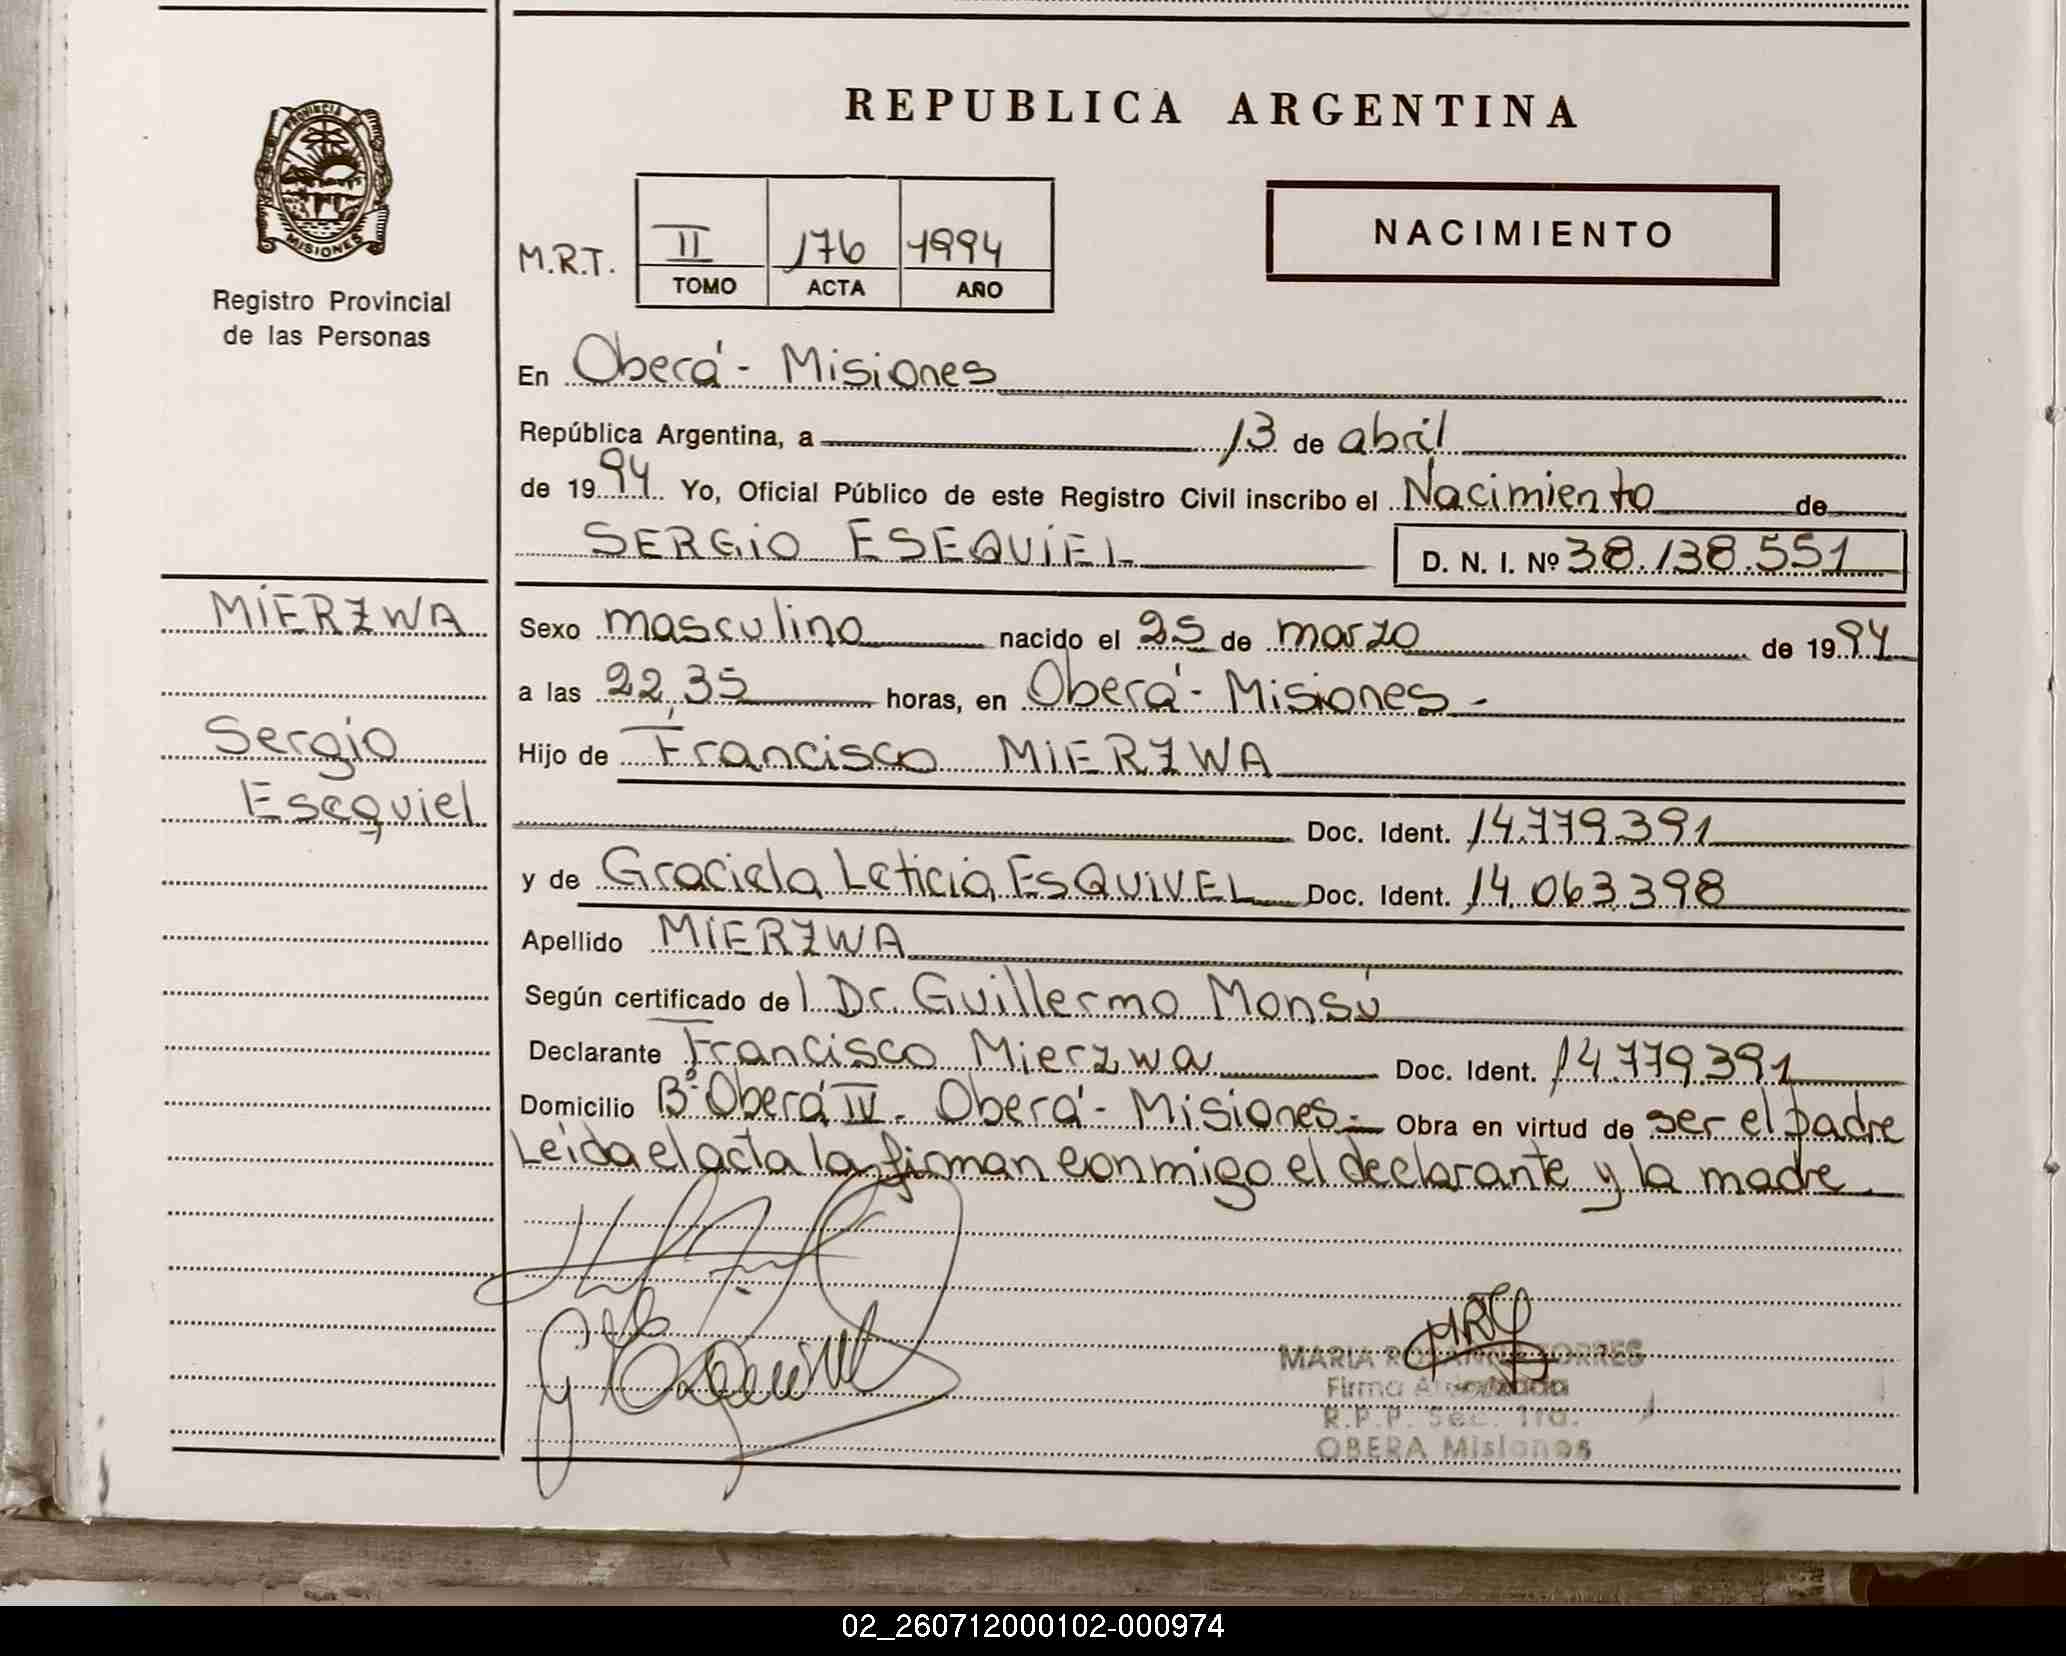 REPUBLICA ARGENTINA
PROVINCIA DE
MISIONES
Registro Provincial
de las Personas
M.R.T.
II 176 1994
TOMO ACTA AÑO
NACIMIENTO
En Oberá - Misiones
República Argentina, a 13 de abril
de 1994 Yo, Oficial Público de este Registro Civil inscribo el Nacimiento de
SERGIO ESEQUIEL D. N. I. Nº 38.138.551
MIERZWA
Sergio
Esequiel
Sexo masculino nacido el 25 de marzo de 1994
a las 22,35 horas, en Oberá - Misiones -
Hijo de Francisco MIERZWA
Doc. Ident. 14.779.391
y de Graciela Leticia ESQUIVEL Doc. Ident. 14.063.398
Apellido MIERZWA
Según certificado de l Dr. Guillermo Monsú
Declarante Francisco Mierzwa Doc. Ident. 14.779.391
Domicilio Bº Oberá IV - Oberá - Misiones - Obra en virtud de ser el padre
Leída el acta la firman conmigo el declarante y la madre.
G Esquivel
MRT
MARIA ROSANNA TORRES
Firma Autorizada
R.P.P. Sec. 1ra.
OBERA Misiones
02_260712000102-000974